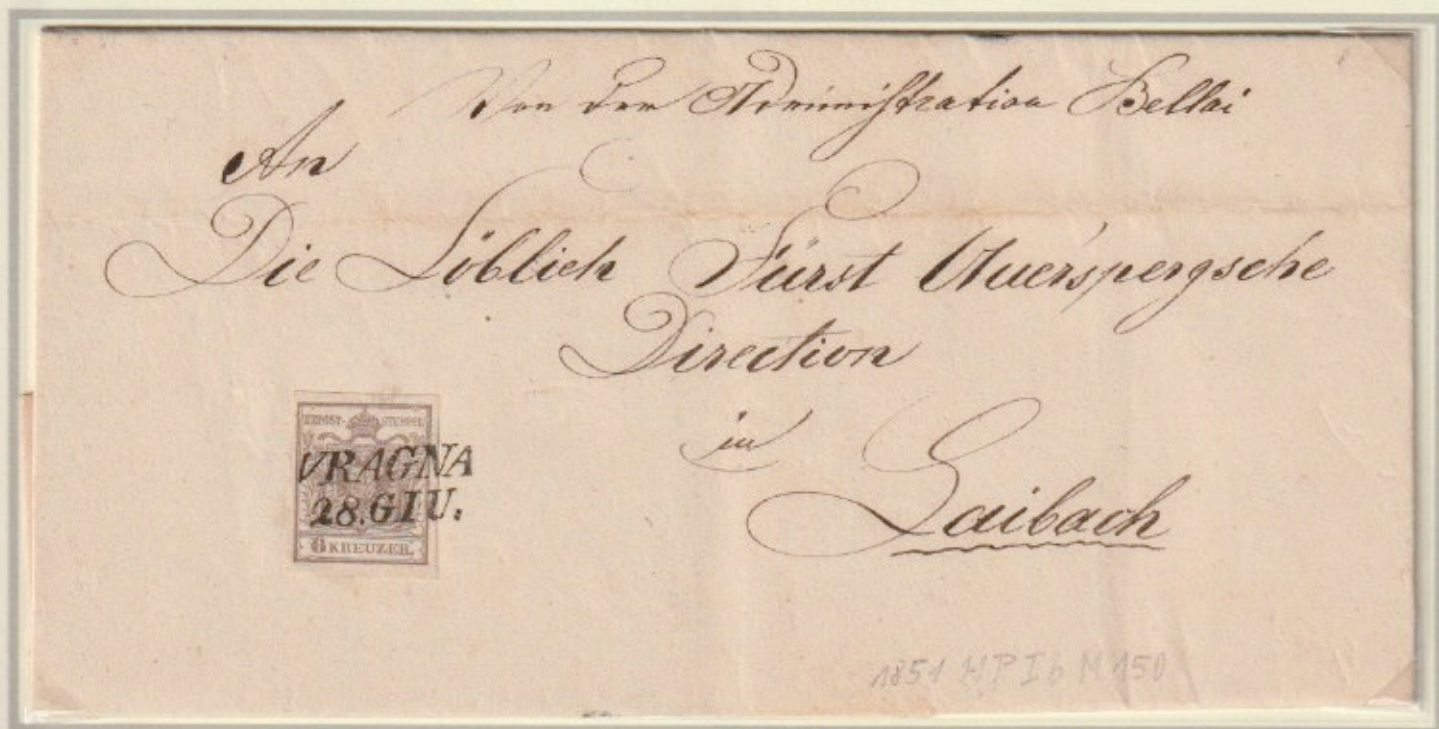 Von der Administration Bellai
An
Die Löblich Fürst Auerspergsche
Direction
in
Laibach
KKPOST-STEMPEL
VRAGNA
28.GIU.
6 KREUZER.
1851 HP I b M 150